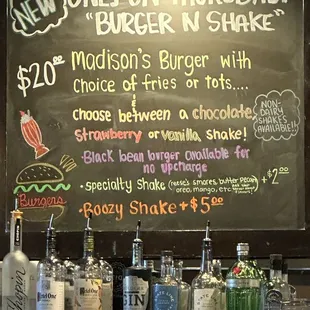 NEW
ONLY ON THURSDAY
"BURGER N SHAKE"
$20.00
Madison's Burger with
choice of fries or tots....
&
choose between a chocolate
Strawberry or vanilla shake!
NON-
DAIRY
SHAKES
AVAILABLE!!
•Black bean burger available for
no upcharge
•specialty shake (reese's, smores, butter pecan,
oreo, mango, etc.) +$2.00
Burgers
•Boozy Shake +$5.00
Ketel One
Ketel One